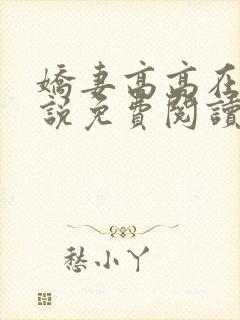 嬌妻高高在
說免費閱讀
愁小丫